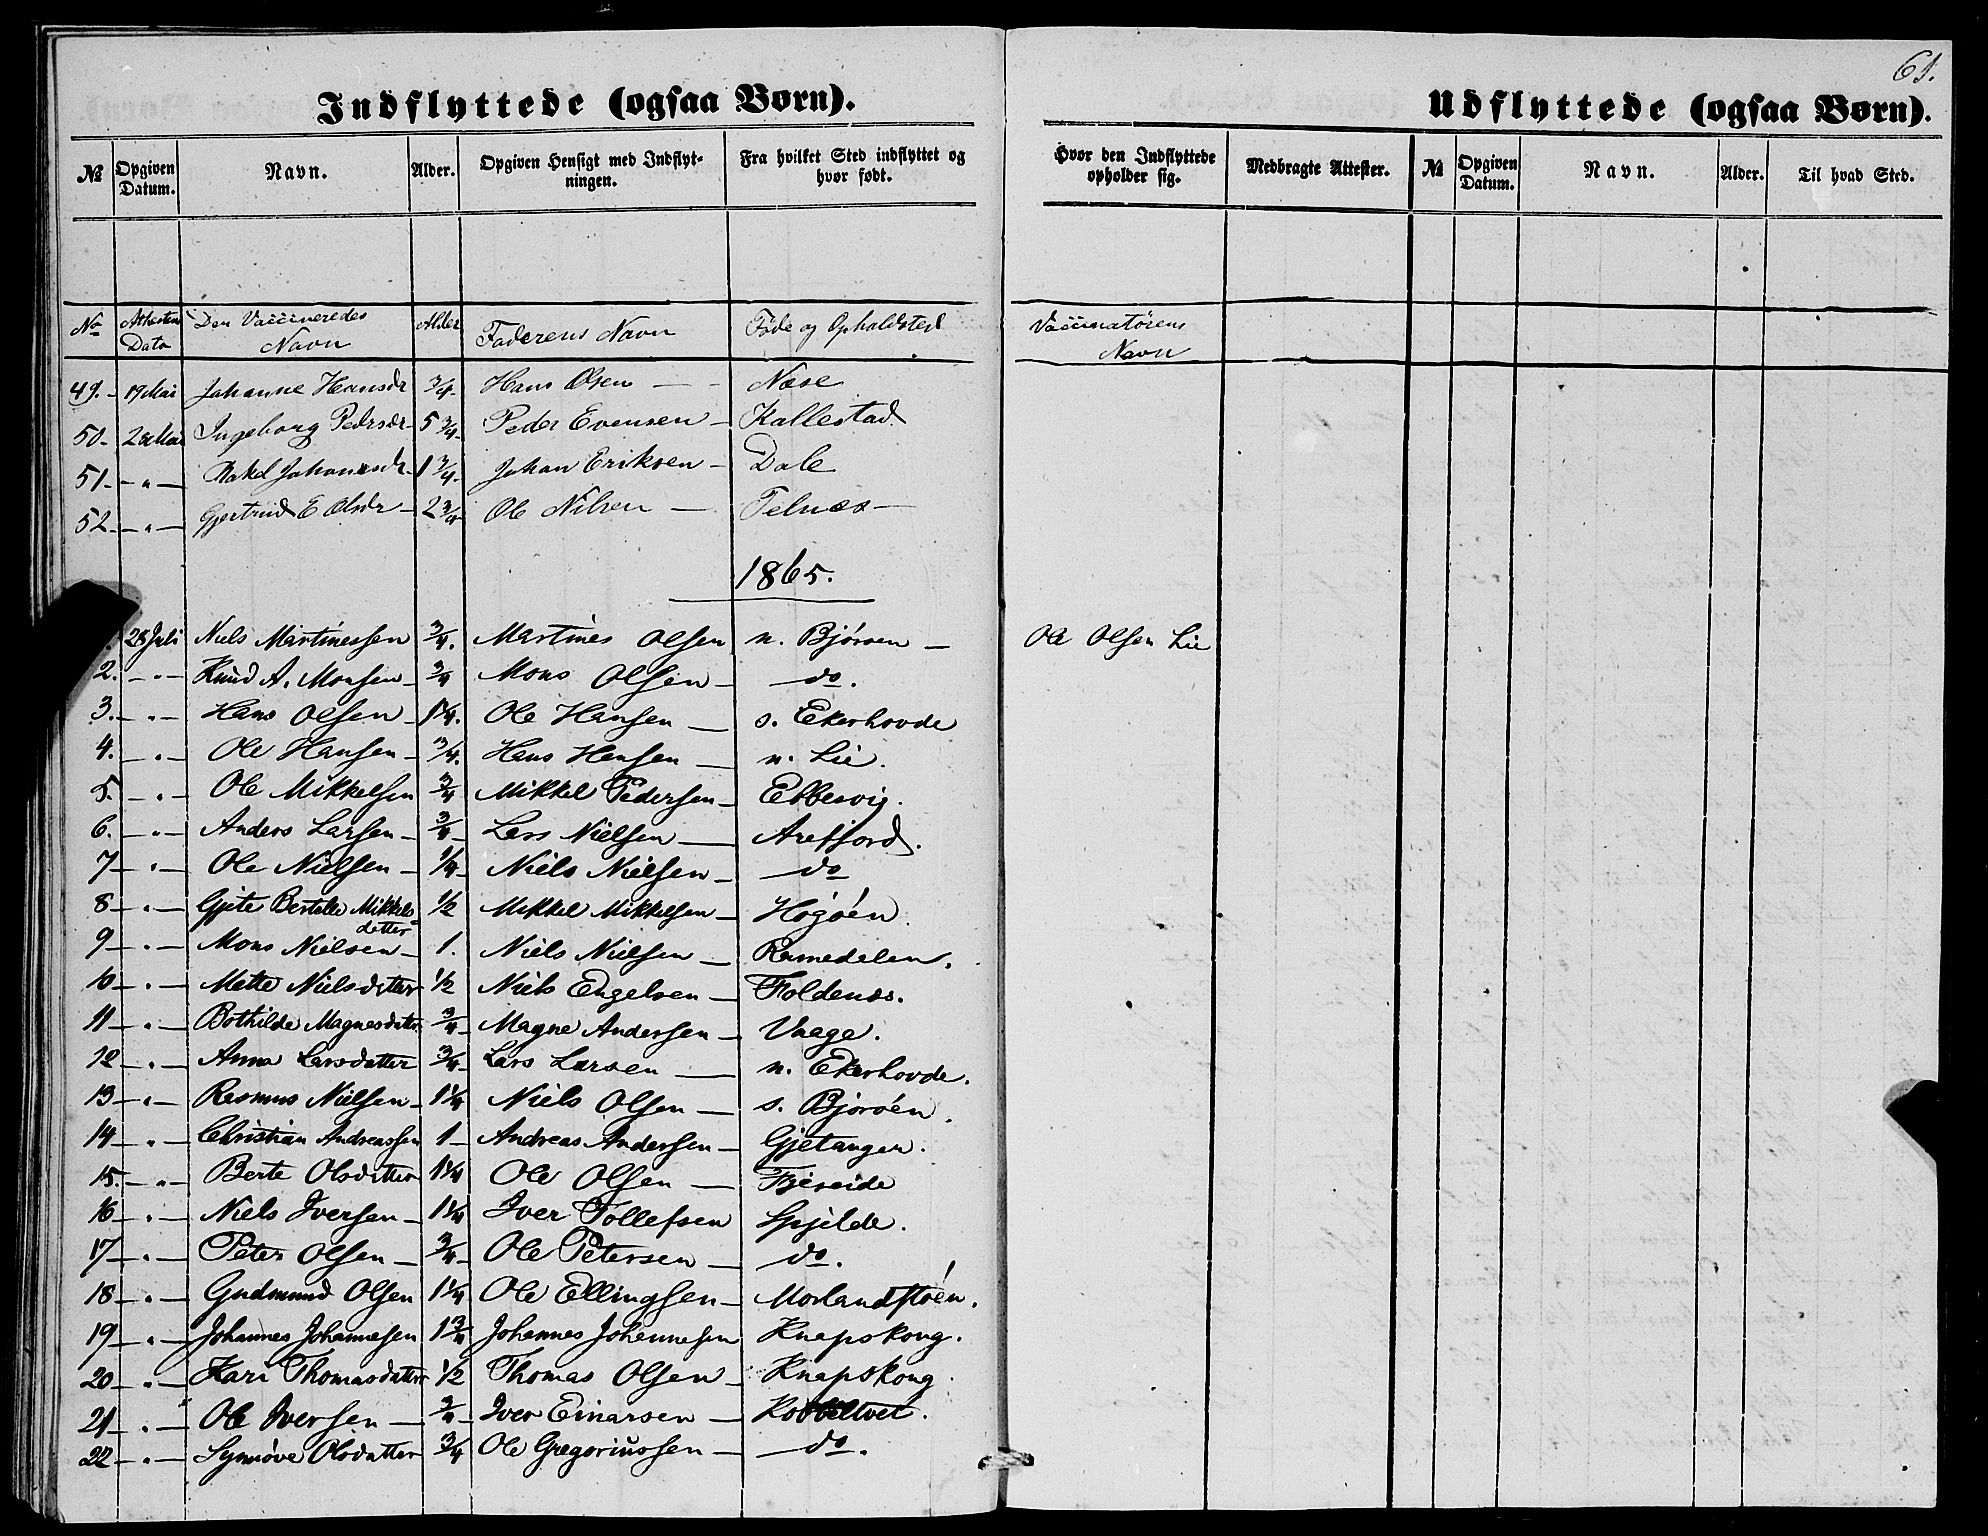 61.
Indflyttede (ogsaa Børn).
Udflyttede (ogsaa Børn).
№ Opgiven Datum. Navn. Alder. Opgiven Hensigt med Indflytningen. Fra hvilket Sted indflyttet og hvor født. Hvor den Indflyttede opholder sig. Medbragte Attester. № Opgiven Datum. Navn. Alder. Til hvad Sted.
No Athestens Dato Den Vaccineredes Navn Alder Faderens Navn Føde og Opholdsted Vaccinatørens Navn
49. 19 Mai Johanne Hansdr 3/4 Hans Olsen Nese
50 28 Mai Ingeborg Pedrsdr 5 3/4 Peder Evensen Kallestad
51 " Rakel Johansdr 1 3/4 Johan Eriksen Dale
52 " Gjertrud E Olsdr 2 3/4 Ole Nilsen Telnæs
1865.
28 Juli Niels Martinessen 3/4. Martines Olsen n. Bjóroen Ole Olsen Lie
2. " Knud A. Monsen 3/4 Mons Olsen do.
3. " Hans Olsen 1 1/4. Ole Hansen s. Ekerhovde
4. " Ole Hansen 3/4. Hans Hansen n. Lie.
5. " Ole Mikkelsen 3/4 Mikkel Pedersen Ebbesvig.
6. " Anders Larsen 3/4 Lars Nielsen Arefjord.
7 " Ole Nielsen 1/4 Niels Nielsen do
8 " Gjite Bertille Mikkelsdatter 1/2 Mikkel Mikkelsen Högöen.
9 " Mons Nielsen 1. Niels Nielsen Ramedalen.
10 " Mette Nielsdatter 1/2 Niels Engelsen Foldenæs.
11 " Bothilde Magnesdatter 3/4 Magne Andersen Vaage.
12 " Anna Larsdatter 3/4 Lars Larsen n. Ekerhovde.
13 " Rasmus Nielsen 1 1/4 Niels Olsen s. Bjoröen.
14 " Christian Andreassen 1 Andreas Andersen Gjetanger.
15. " Berte Olsdatter 1 1/4 Ole Olsen Fjereide
16 " Niels Iversen 1 1/4 Iver Tollefsen Spjelde.
17 " Peter Olsen 3/4 Ole Petersen do.
18 " Gudmund Olsen 1 1/4 Ole Ellingsen Morlandstöen.
19 " Johannes Johannesen 1 3/4 Johannes Johannesen Knapskong.
20 " Kari Thomasdatter 1/2 Thomas Olsen Knapskong
21 " Ole Iversen 3/4 Iver Einarsen Kobbeltvet.
22 " Synnöve Olsdatter 3/4 Ole Gregoriussen do.